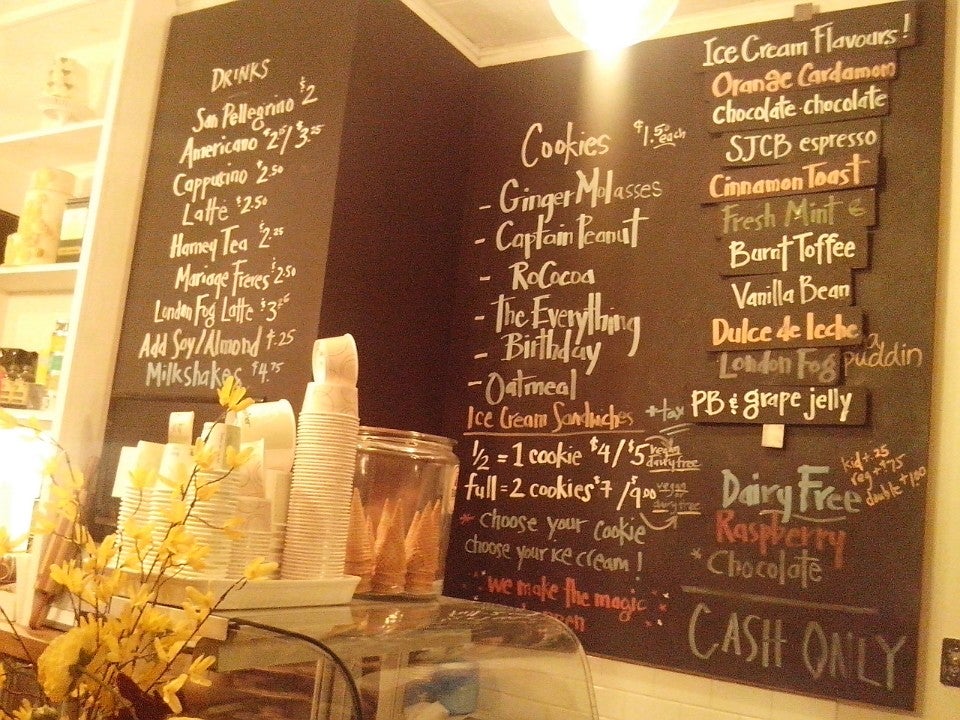 DRINKS
San Pellegrino $2
Americano $2.25/$3.25
Cappucino $2.50
Latte $2.50
Harney Tea $2.25
Mariage Freres $2.50
London Fog Latte $3.25
Add Soy/Almond $.25
Milkshakes $4.75
Cookies $1.50 each
- Ginger Molasses
- Captain Peanut
- RoCocoa
- The Everything
- Birthday
- Oatmeal
Ice Cream Sandwiches +tax
1/2 = 1 cookie $4/$5 vegan dairy free
full = 2 cookies $7/9.00 vegan dairy free
* choose your cookie
choose your ice cream!
* we make the magic
Ice Cream Flavours!
Orange Cardamon
Chocolate · chocolate
SJCB espresso
Cinnamon Toast
Fresh Mint
Burnt Toffee
Vanilla Bean
Dulce de leche
London Fog puddin
PB & grape jelly
Dairy Free
kid + 25
reg + .75
double + 1.00
Raspberry
* Chocolate
CASH ONLY